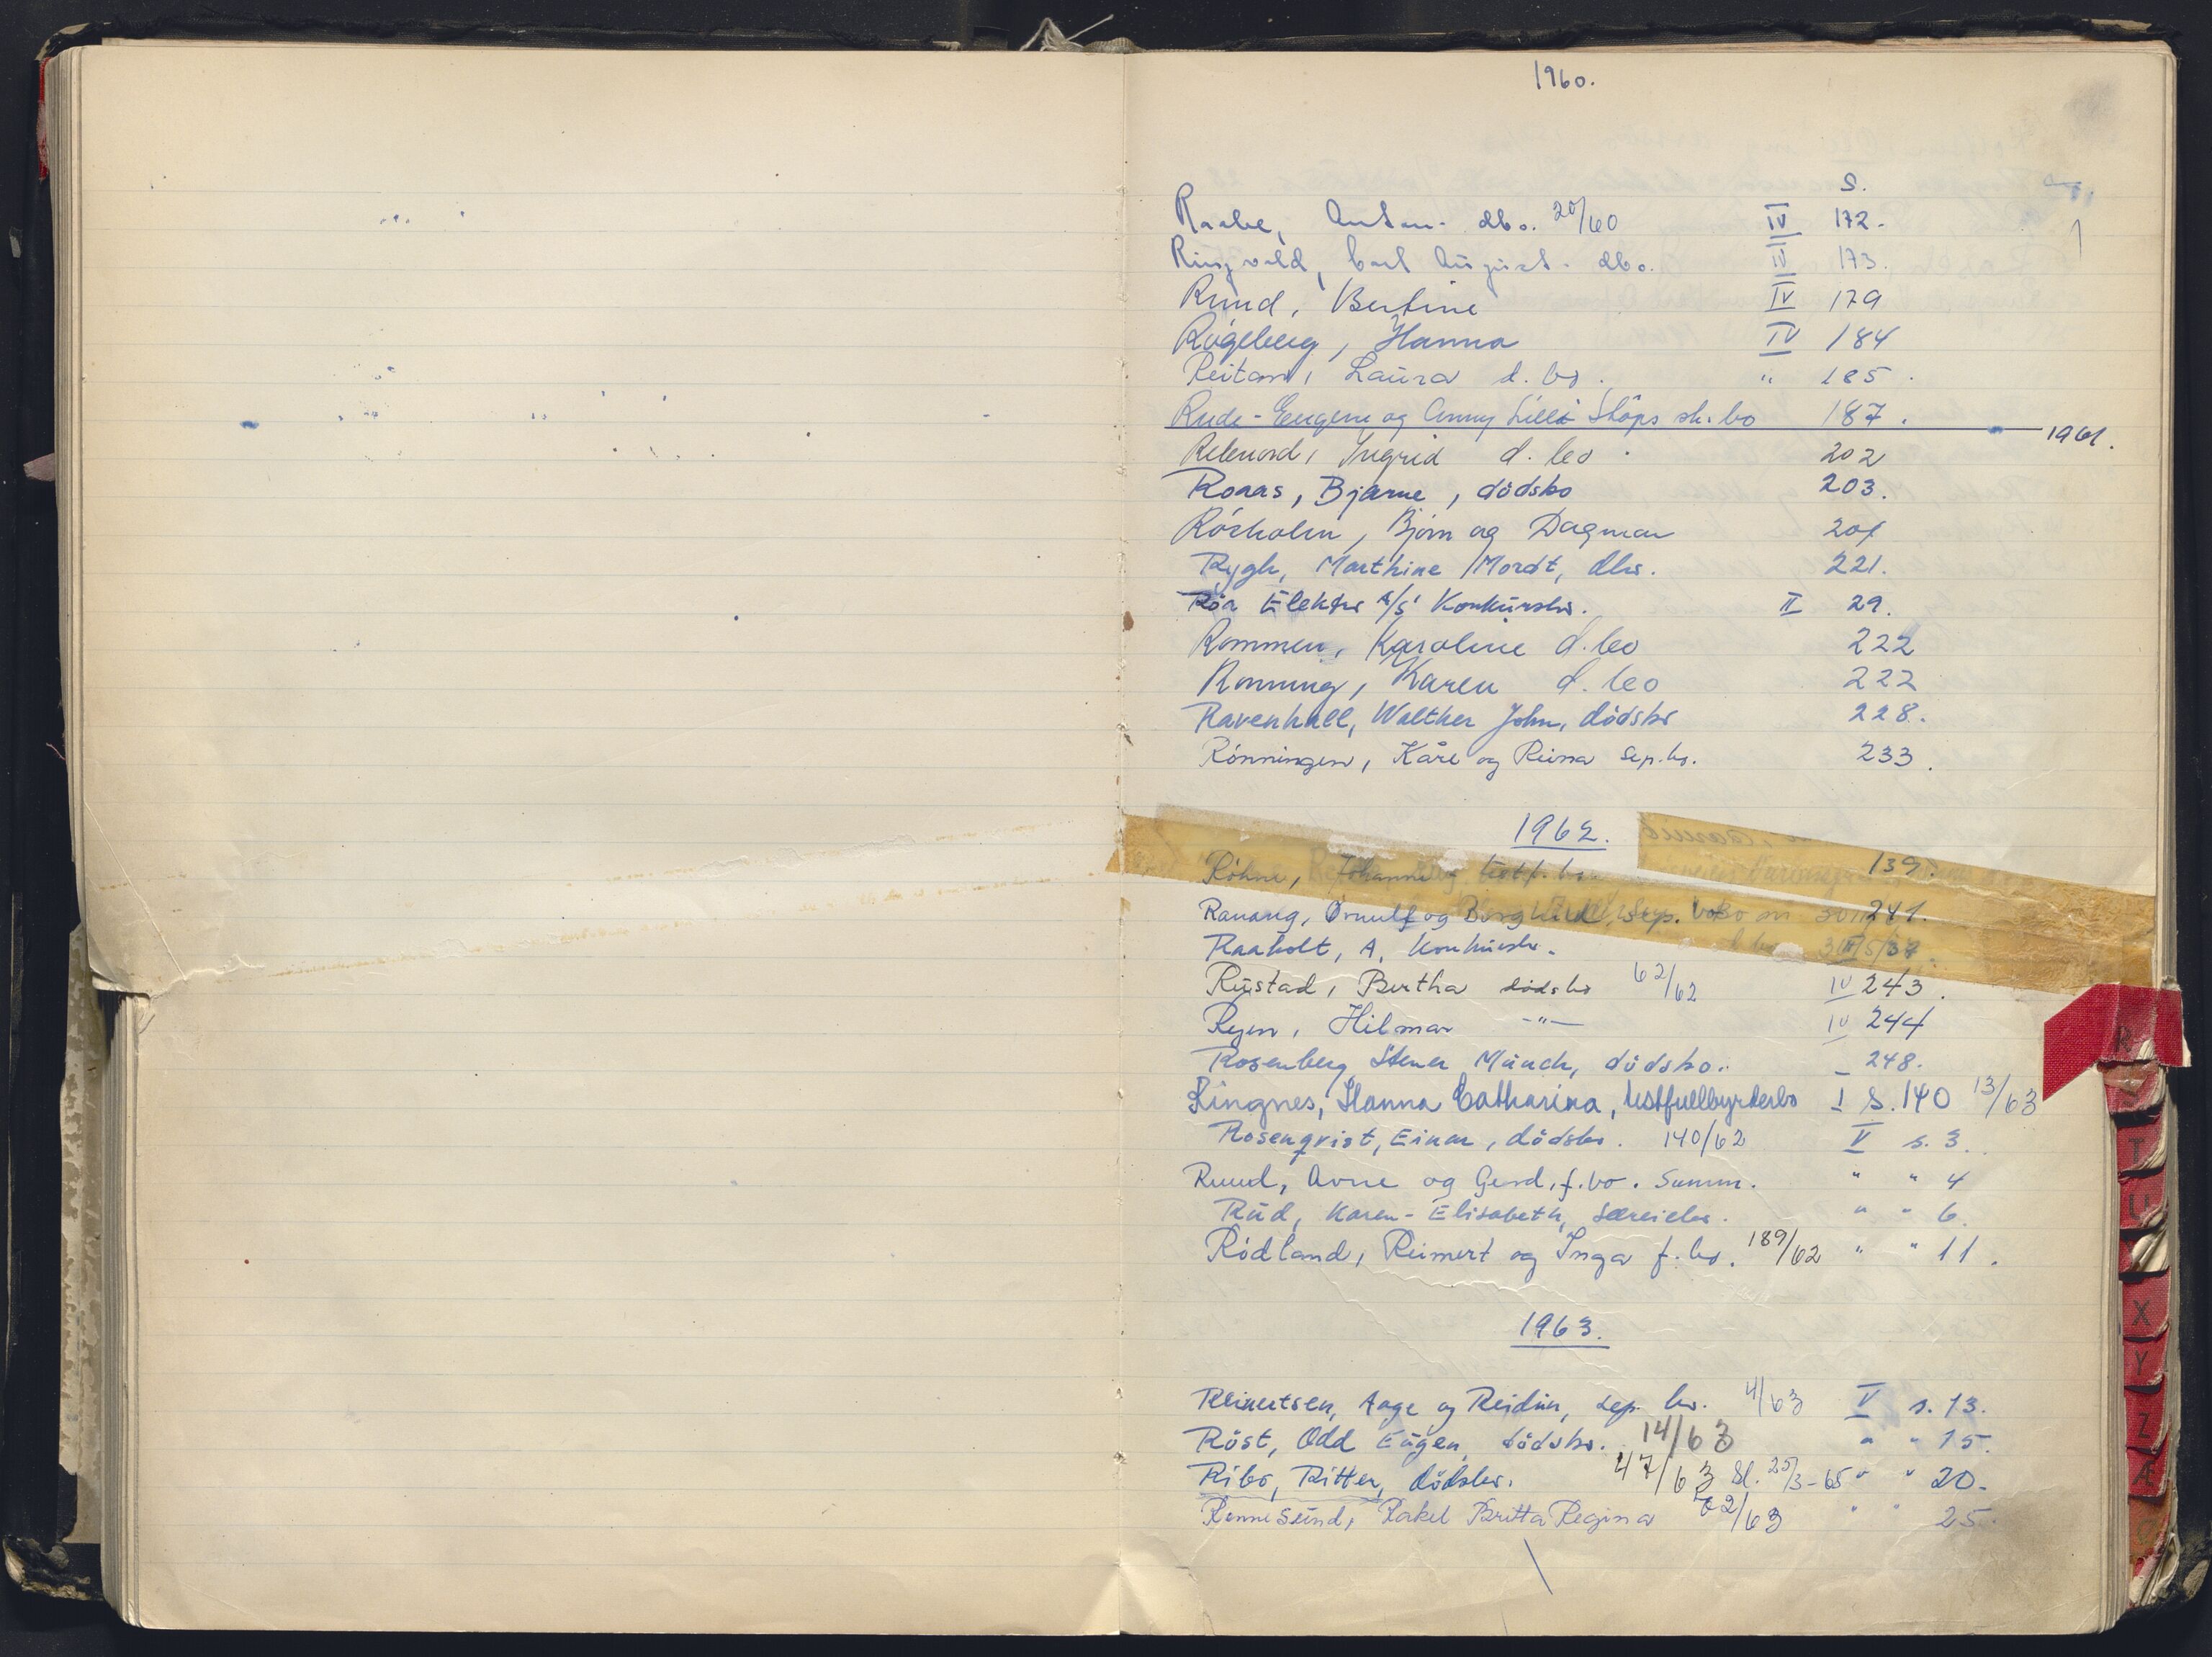 1960.
S.
Raabe, Anton. dbo. 20/60 IV 172.
Ringvold, Carl August. dbo. IV 173.
Ruud, Bertine IV 179
Rögeberg, Hanna IV 184
Reitan, Laura d. bo. " 185.
Rude - Eugene og Anny Lilli Sköps sk. bo 187.
1961.
Ingrid d. bo. 202
Roaas, Bjarne, dödsbo 203.
Rörholm, Björn og Dagmar 204
Rygh, Marthine Mordt, dbo. 221.
Röa Elektro A/S' Konkursbo. II 29.
Rommen, Karoline d. bo 222
Ronning, Karen d. bo 222
Ravenhall, Walther John, dödsbo 228.
Rönningen, Kåre og Reina sep. bo. 233.
1962.
Röhne, Johanne testf. bo. 139.
Ranang, Ornulf og Borghild, sep. bo 241.
Raaholt, A. Konkursbo. III s/37.
Rustad, Bertha dödsbo 62/62 IV 243.
Ryen, Hilmar -"- IV 244
Rosenberg, Stener Münch, dödsbo. - 248.
Ringnes, Hanna Catharina, testfullbyrderbo I S. 140 13/63
Rosenqvist, Einar, dödsbo. 140/62 V s. 3.
Ruud, Arne og Gerd, f. bo. Summ. " " 4
Rud, Karen-Elisabeth, Særeiebo. " " 6.
Rödland, Reimert og Inga f. bo. 189/62 " " 11.
1963.
Reinertsen, Aage og Reidun, sep. bo. 4/63 V s. 13.
Röst, Odd Eugen, dödsbo. 14/63 " " 15.
Ribo, Ritter, dödsbo. 47/63 Sl. 25/3-65 " " 20.
Rennesund, Rakel Britta Regina 62/63 " " 25.
R
T
U
X
Y
Z
Æ